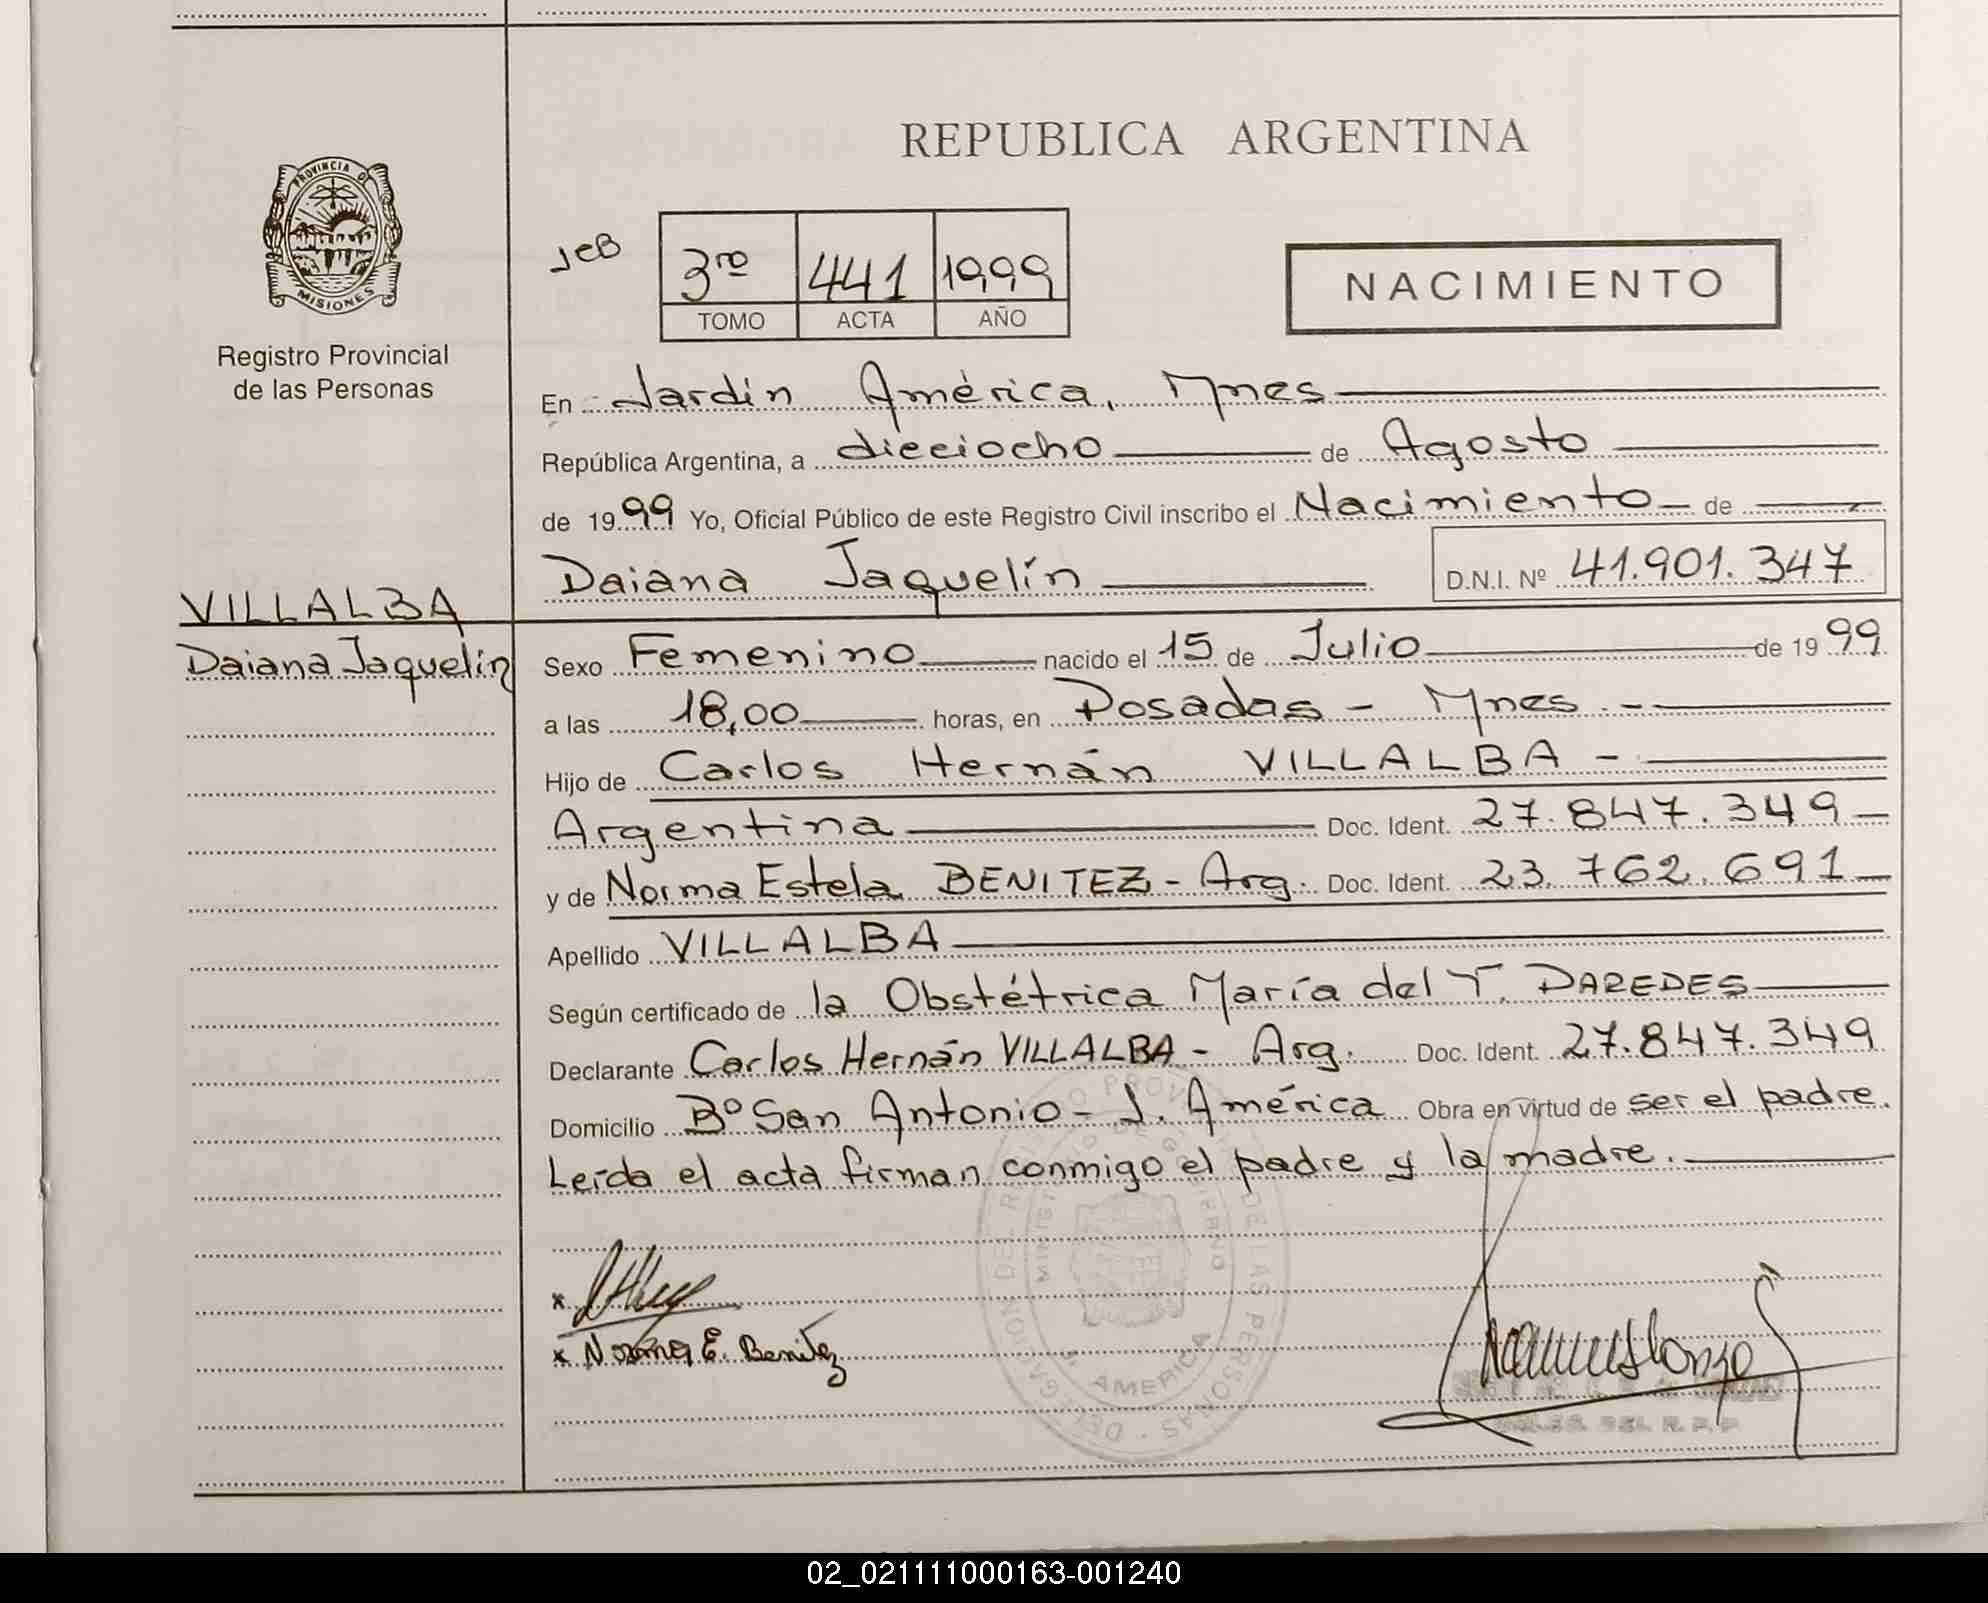 REPUBLICA ARGENTINA
PROVINCIA DE
MISIONES
Registro Provincial
de las Personas
JCB
3ro 441 1999
TOMO ACTA AÑO
NACIMIENTO
En Jardín América, Mnes
República Argentina, a dieciocho de Agosto
de 1999 Yo, Oficial Público de este Registro Civil inscribo el Nacimiento de
Daiana Jaquelín D.N.I. Nº 41.901.347
VILLALBA
Daiana Jaquelín
Sexo Femenino nacido el 15 de Julio de 1999
a las 18,00 horas, en Posadas - Mnes. -
Hijo de Carlos Hernán VILLALBA -
Argentina Doc. Ident. 27.847.349
y de Norma Estela BENITEZ - Arg. Doc. Ident. 23.762.691
Apellido VILLALBA
Según certificado de la Obstétrica María del T. PAREDES
Declarante Carlos Hernán VILLALBA - Arg. Doc. Ident. 27.847.349
Domicilio Bº San Antonio - J. América Obra en virtud de ser el padre.
Leída el acta firman conmigo el padre y la madre.
x
x Norma E. Benitez
DELEGACION DEL REGISTRO PROVINCIAL DE LAS PERSONAS
MINISTERIO DE GOBIERNO
J. AMERICA
DEL R. P. P.
02_021111000163-001240